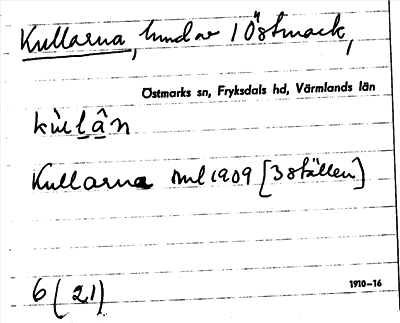 Kullarna, hundar i Östmark,
Östmarks sn, Fryksdals hd, Värmlands län
kùlân
Kullarna Jml 1909 [3 ställen]
6 (21)
1910–16